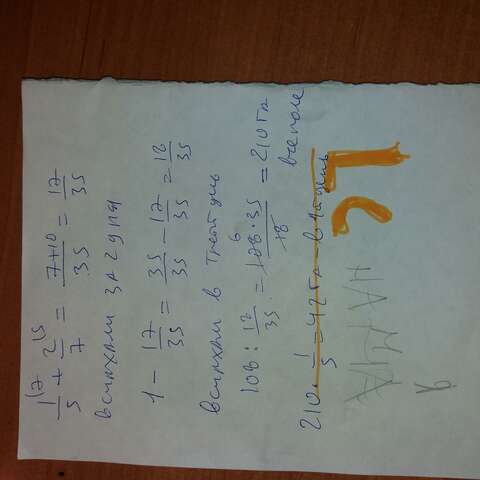 1/5 + 2/7 = 7+10/35 = 17/35
вспахали за 2 дня
1 - 17/35 = 35/35 - 17/35 = 18/35
вспахали в третий день
108 : 18/35 = 108·35/18 = 210 га
все поле
210 · 1/5 = 42 га - в 1 день